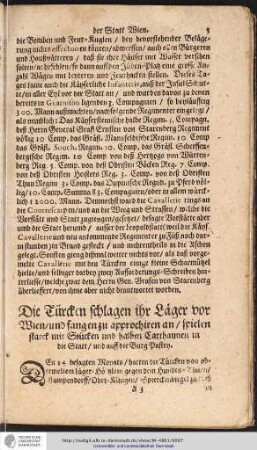 der Statt Wien. 5
die Bomben und Feur-Kuglen / bey bevorstehender Beläge-
rung nichts effectuiren könten / abwerffen / auch allen Burgern
und Haußvättern / daß sie ihre Häuser mit Wasser versehen
sollen / anbefehlen / so dann auff den Juden-Platz eine grosse An-
zahl Wägen mit Lederen und Feurhacken stellen. Dieses Ta-
ges kame auch die Käyserliche Infanterie, auß der Insul Schüt-
te / in aller Eyl vor die Statt an / und wurden davon zu denen
bereits in Guarnison ligenden 3. Compagnien / so beyläuffig
300. Mann außmachten / nach folgende Regimenter eingelegt /
als nemblich: Das Käyserstainische halbe Regim. 5. Compagn.
deß Herrn General Graff Ernsten von Starenberg Regiment
völlig 10. Comp. das Gräfl. Mansfeldische Regim. 10. Comp.
das Gräfl. Souch. Regim. 10. Comp. das Gräfl. Scherffen-
bergische Regim. 10. Comp. von deß Hertzogs von Würten-
berg Reg. 5. Comp. von deß Obristen Bäcken Reg. 7. Comp.
von deß Obristen Heisters Reg. 3. Comp. von deß Obristen
Thun Regim. 3. Comp. das Dupinische Regim. zu Pferd völ-
lig / 10. Comp. Summa 83. Compagnien / oder in allem würck-
lich 12000. Mann. Demnechst ward die Cavallerie rings an
die Contrescarpen / und an die Weeg und Strassen / welche die
Vorstätt und Statt zugiengen / gesetzet / besagte Vorstätte aber
und die Statt herumb / ausser der Leopoldstatt / weil die Käys.
Cavallerie und neu ankommende Regimenter zu Füß noch dar-
inn stunden / zu Brand gesteckt / und mehrentheils in die Aschen
gelegt. Sonsten gieng dißmal weiter nichts vor / als daß vorge-
melte Cavallerie mit den Türcken einige kleine Scharmützel
hielte / und selbiger darbey zwey Aufforderungs-Schreiben hin-
terliesse / welche zwar dem Herrn Gen. Grafen von Starenberg
überliefert / von ihme aber nicht beantwortet worden.
Die Türcken schlagen ihr Läger vor
Wien / und fangen zu approchiren an / spielen
starck mit Stücken und halben Carthaunen in
die Statt / und auff die Burg Pastey.
DEn 14 besagten Monats / hatten die Türcken von ob-
A 3